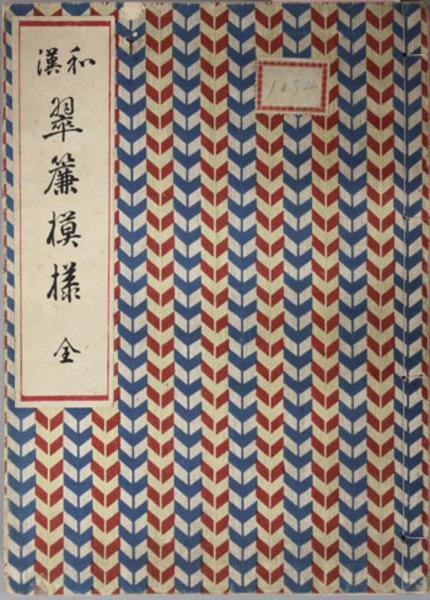 和漢
翠簾模様
全